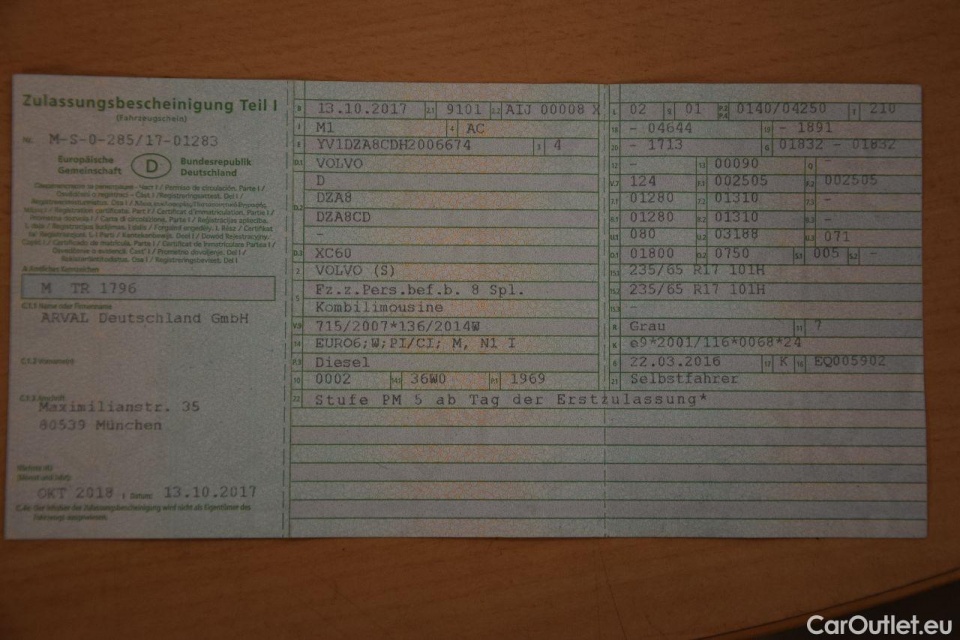 Zulassungsbescheinigung Teil I
(Fahrzeugschein)
Nr. M-S-0-285/17-01283
Europäische Gemeinschaft
D
Bundesrepublik Deutschland
M TR 1796
C.1.1 Name oder Firmenname
ARVAL Deutschland GmbH
C.1.2 Vorname(n)
C.1.3 Anschrift
Maximilianstr. 35
80539 München
OKT 2018 Datum: 13.10.2017
B 13.10.2017 2.1 9101 2.2 AIJ 00008 X
J M1 4 AC
E YV1DZA8CDH2006674 3 4
D.1 VOLVO
D
D.2 DZA8
DZA8CD
-
D.3 XC60
2 VOLVO (S)
5 Fz.z.Pers.bef.b. 8 Spl.
Kombilimousine
V.9 715/2007*136/2014W
14 EURO6;W;PI/CI; M, N1 I
P.3 Diesel
10 0002 14.1 36W0 P.1 1969
22 Stufe PM 5 ab Tag der Erstzulassung*
L 02 9 01 P.2 P.4 0140/04250 T 210
18 - 04644 19 - 1891
20 - 1713 G 01832 - 01832
12 - 13 00090 Q -
V.7 124 F.1 002505 F.2 002505
7.1 01280 7.2 01310 7.3 -
8.1 01280 8.2 01310 8.3 -
U.1 080 U.2 03188 U.3 071
O.1 01800 O.2 0750 S.1 005 S.2 -
15.1 235/65 R17 101H
15.2 235/65 R17 101H
15.3 -
R Grau 11 7
K e9*2001/116*0068*24
6 22.03.2016 17 K 16 EQ005902
21 Selbstfahrer
CarOutlet.eu